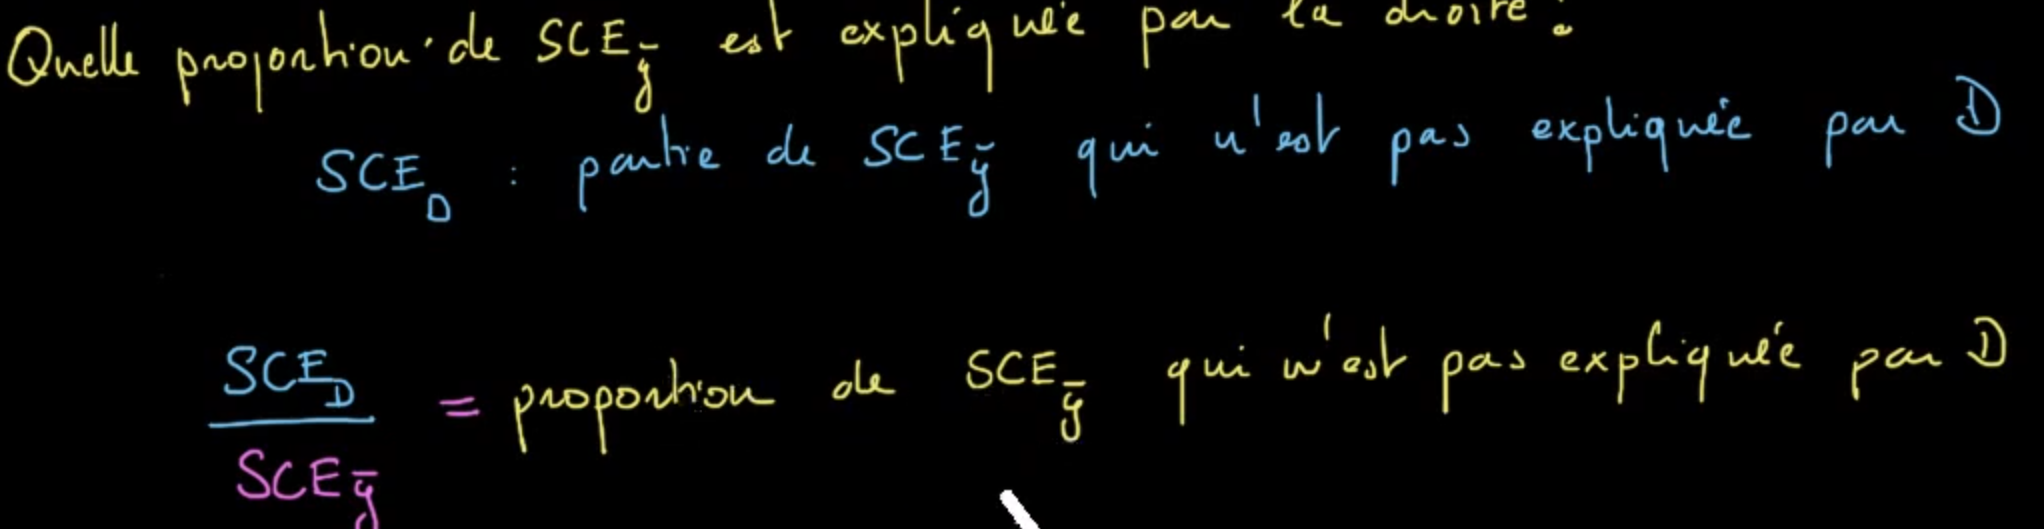 Quelle proportion de SCE_ȳ est expliquée par la droite ?
SCE_D : partie de SCE_ȳ qui n'est pas expliquée par D
SCE_D / SCE_ȳ = proportion de SCE_ȳ qui n'est pas expliquée par D